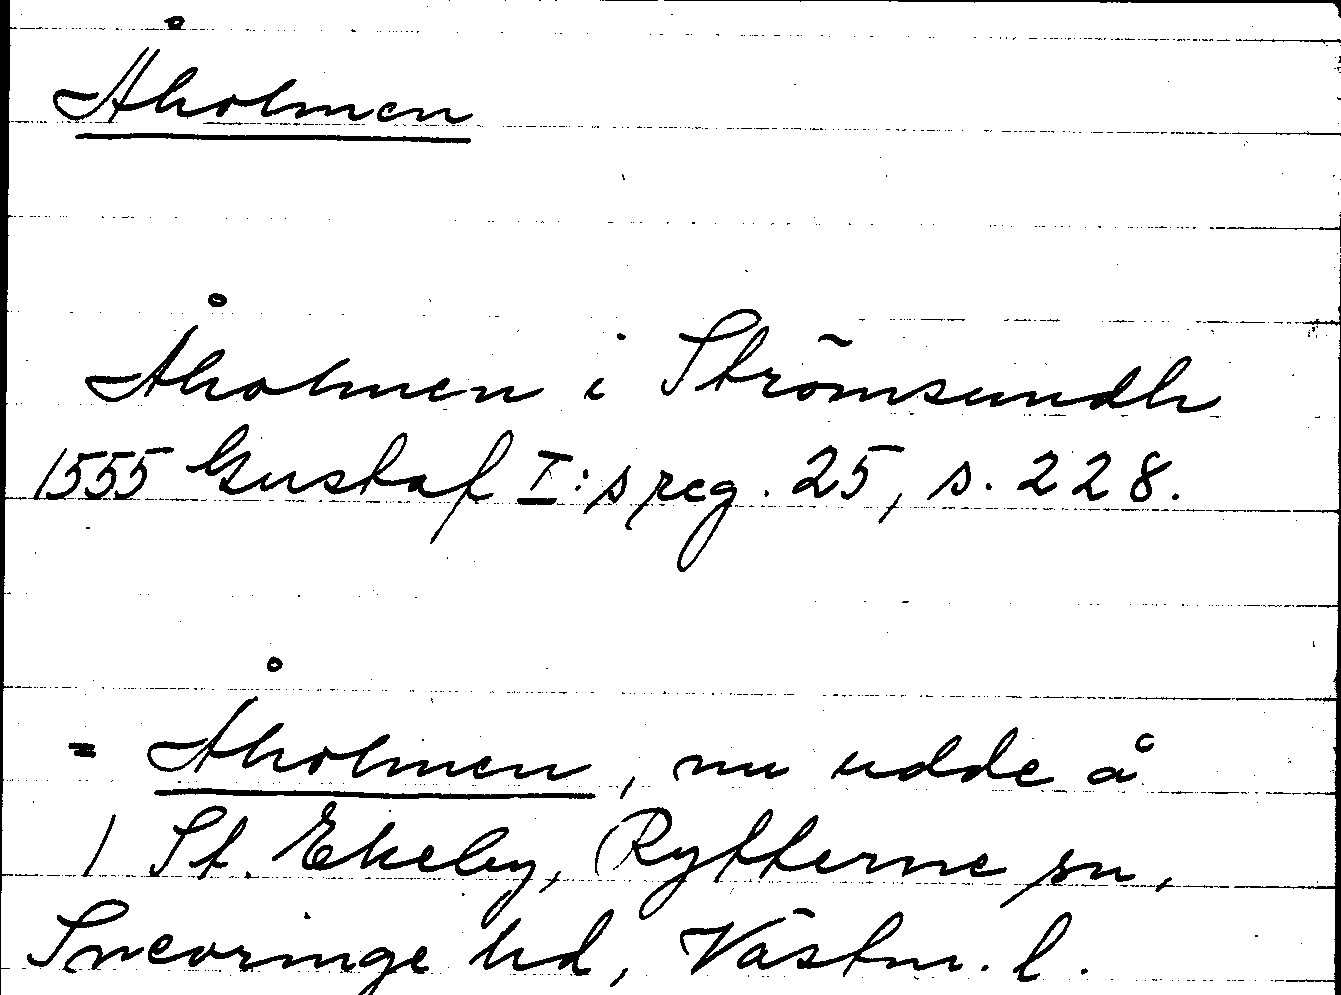 Åholmen
Åholmen i Strömsundh
1555 Gustaf I:s reg. 25, s. 228.
= Åholmen, nu udde å
/ St. Ekeby, Rytterne sn,
Snevringe hd, Västm. l.